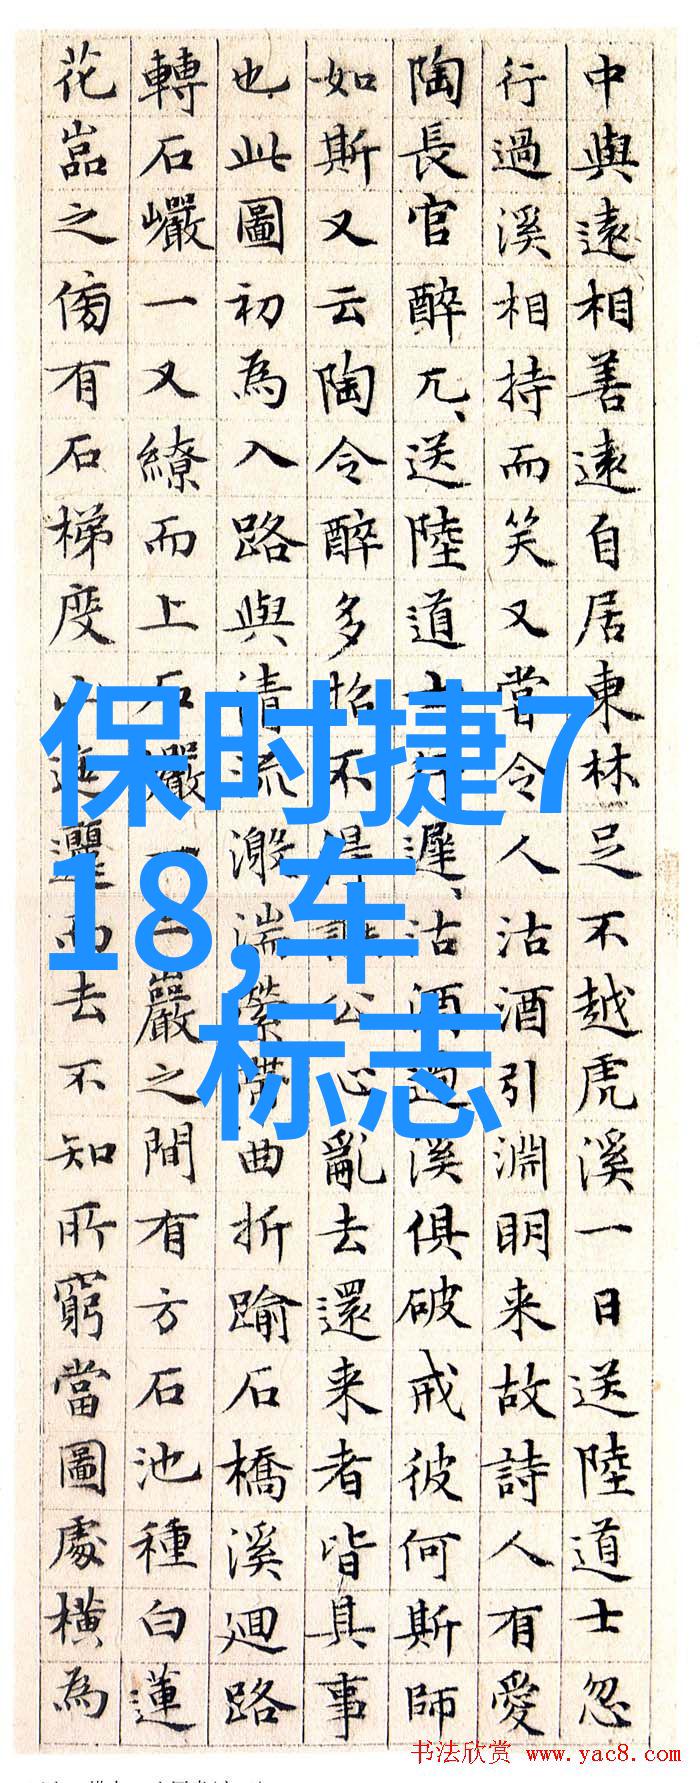 中與遠相善遠自居東林足不越虎溪一日送陸道士忽
行過溪相持而笑又嘗令人沽酒引淵明来故詩人有愛
陶長官醉兀、送陸道士行遲、沽酒過溪俱破戒彼何斯師
如斯又云陶令醉多招不得謝公心亂去還来者皆具事
也此圖初為入路與清流激湍縈帶曲折踰石橋溪廻路
轉石巖一又繚而上石巖一二巖之間有方石池種白蓮
花嵓之傍有石梯度山迤邐而去不知所窮當圖處橫為
保时捷7
18,车
标志
书法欣赏 www.yac8.com